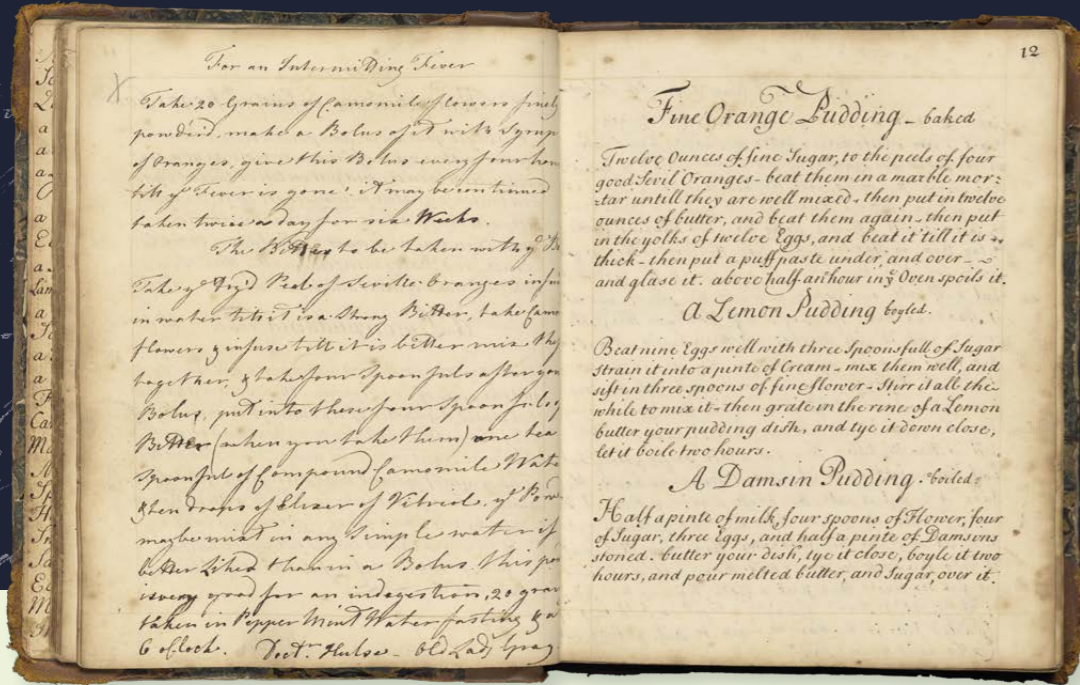 For an Intermitting Fever
Take 20 Grains of Camomile flowers finely
powder'd, make a Bolus of it with Syrup
of Oranges, give this Bolus every four
till yͤ Fever is gone. it may be continued
taken twice a day for six Weeks.
The Bitter to be taken with yͤ
Take yͤ Dry'd Peel of Seville Oranges
in water till it is a Strong Bitter, take
flowers & infuse till it is bitter mix
together, & take four Spoonfuls after
Bolus, put into these four Spoonfuls
Bitter (when you take them) one tea
Spoonful of Compound Camomile
& ten drops of Elixer of Vitriol, yͤ
may be mixt in any Simple water if
better Liked than in a Bolus. this
is very good for an indegestion, 20
taken in Pepper Mint Water fasting &
6 oClock. Doctʳ Hulse - Old Lady Gray
12
Fine Orange Pudding - baked
Twelve Ounces of fine Sugar, to the peels of four
good Sevil Oranges - beat them in a marble mor:
:tar untill they are well mixed - then put in twelve
ounces of butter, and beat them again - then put
in the yolks of twelve Eggs, and beat it till it is
thick - then put a puff paste under and over -
and glase it. above half an hour in yͤ Oven spoils it.
A Lemon Pudding boyled.
Beat nine Eggs well with three Spoonsfull of Sugar
strain it into a pinte of Cream - mix them well, and
sift in three spoons of fine flower - Stirr it all the
while to mix it - then grate in the rine of a Lemon
butter your pudding dish, and tye it down close,
let it boile two hours.
A Damsin Pudding. boiled:
Half a pinte of milk, four spoons of Flower, four
of Sugar, three Eggs, and half a pinte of Damsins
stoned. butter your dish, tye it close, boyle it two
hours, and pour melted butter, and Sugar, over it.